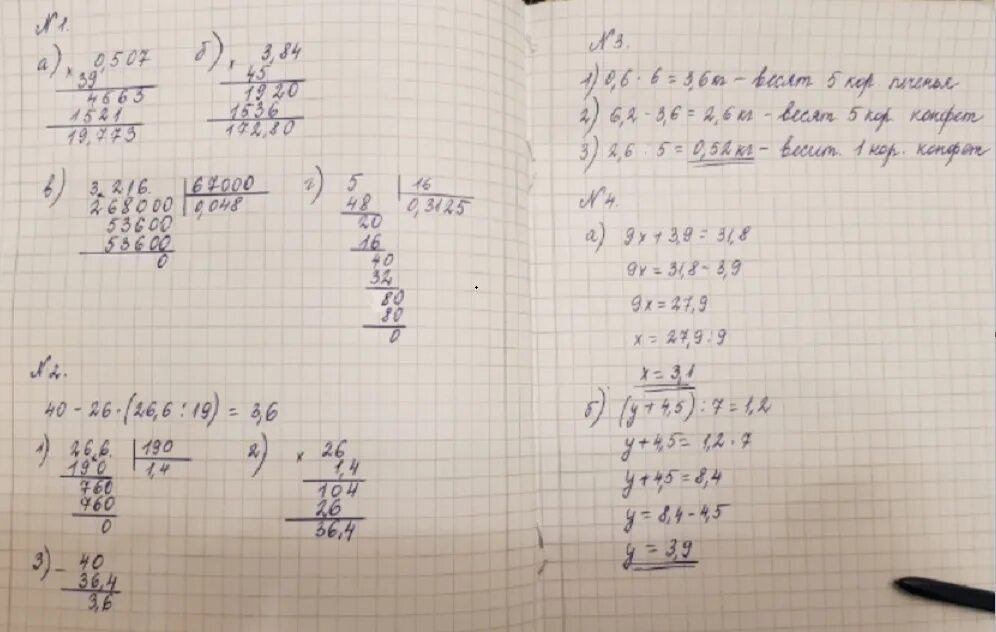 №1.
а) × 0,507
39
4563
1521
19,773
б) × 3,84
45
1920
1536
172,80
в) 3,216. | 67000
268000 | 0,048
53600
53600
0
г) 5 | 16
48 | 0,3125
20
16
40
32
80
80
0
№2.
40 - 26 · (26,6 : 19) = 3,6
1) 26,6. | 190
190 | 1,4
760
760
0
2) × 26
1,4
104
26
36,4
3) - 40
36,4
3,6
№3.
1) 0,6 · 6 = 3,6 кг - весят 5 кор. печенья
2) 6,2 - 3,6 = 2,6 кг - весят 5 кор. конфет
3) 2,6 : 5 = 0,52 кг - весит. 1 кор. конфет
№4.
а) 9x + 3,9 = 31,8
9x = 31,8 - 3,9
9x = 27,9
x = 27,9 : 9
x = 3,1
б) (y + 4,5) : 7 = 1,2
y + 4,5 = 1,2 · 7
y + 4,5 = 8,4
y = 8,4 - 4,5
y = 3,9